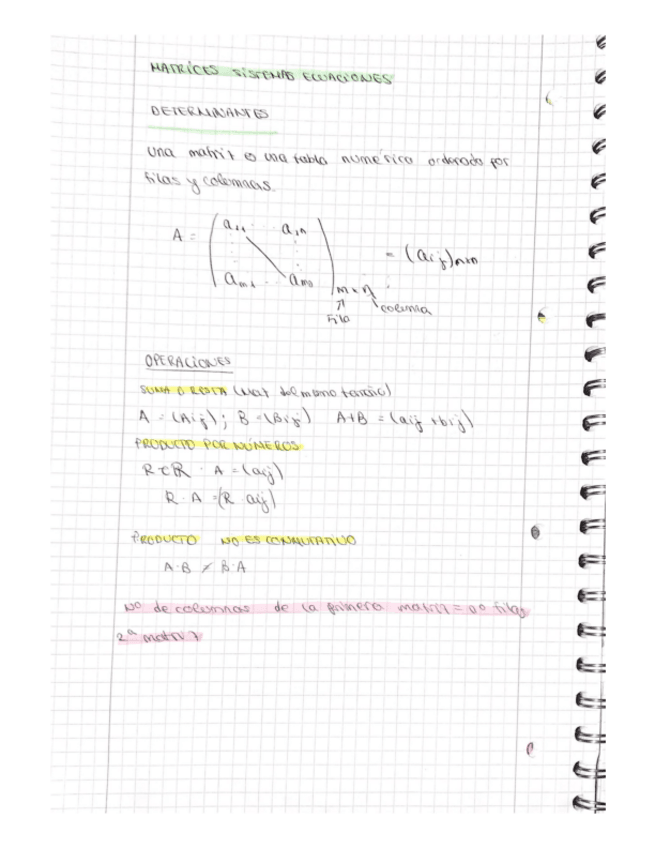 MATRICES SISTEMAS ECUACIONES
DETERMINANTES
Una matriz es una tabla numérica ordenada por
filas y columnas.
A = ( a11 ... a1n
am1 ... amn ) m×n = (aij)m×n
Fila columna
OPERACIONES
SUMA O RESTA (Mat del mismo tamaño)
A = (Aij); B = (Bij) A+B = (aij + bij)
PRODUCTO POR NÚMEROS
R ∈ ℝ · A = (aij)
R · A = (R · aij)
PRODUCTO NO ES CONMUTATIVO
A·B ≠ B·A
Nº de columnas de la primera matriz = nº filas
2ª matriz